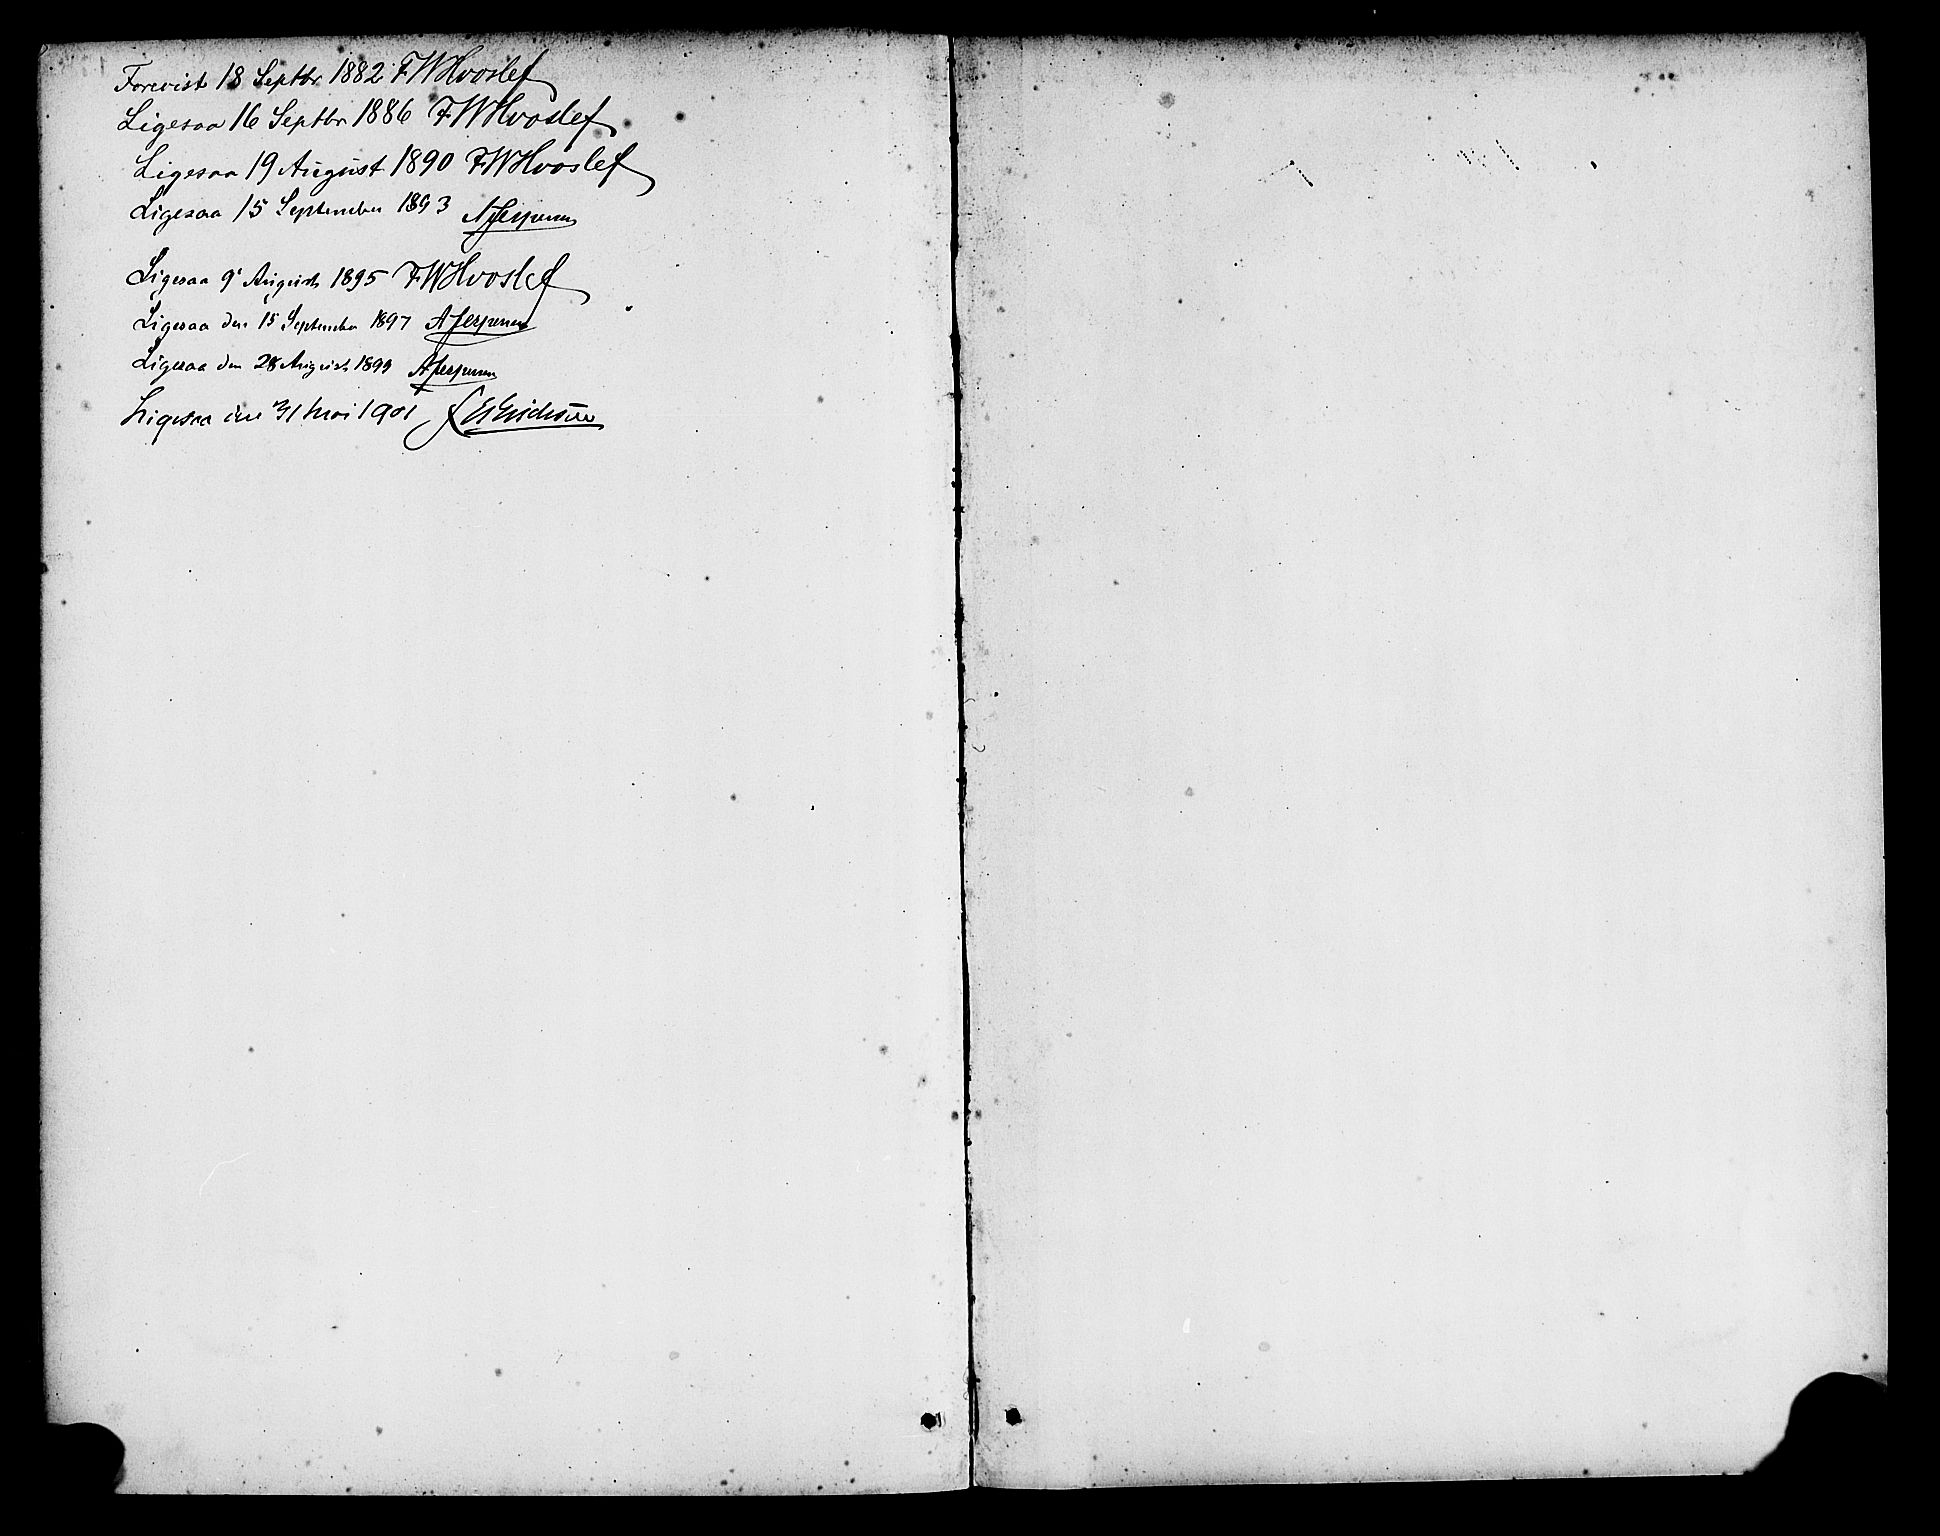 Forevist 18 Septbr 1882 FWHvoslef
Ligesaa 16 Septbr 1886 FWHvoslef
Ligesaa 19 August 1890 FWHvoslef
Ligesaa 15 September 1893 AJespersen
Ligesaa 9' August 1895 FWHvoslef
Ligesaa den 15 September 1897 AJespersen
Ligesaa den 28 August 1899 AJespersen
Ligesaa den 31 Mai 1901